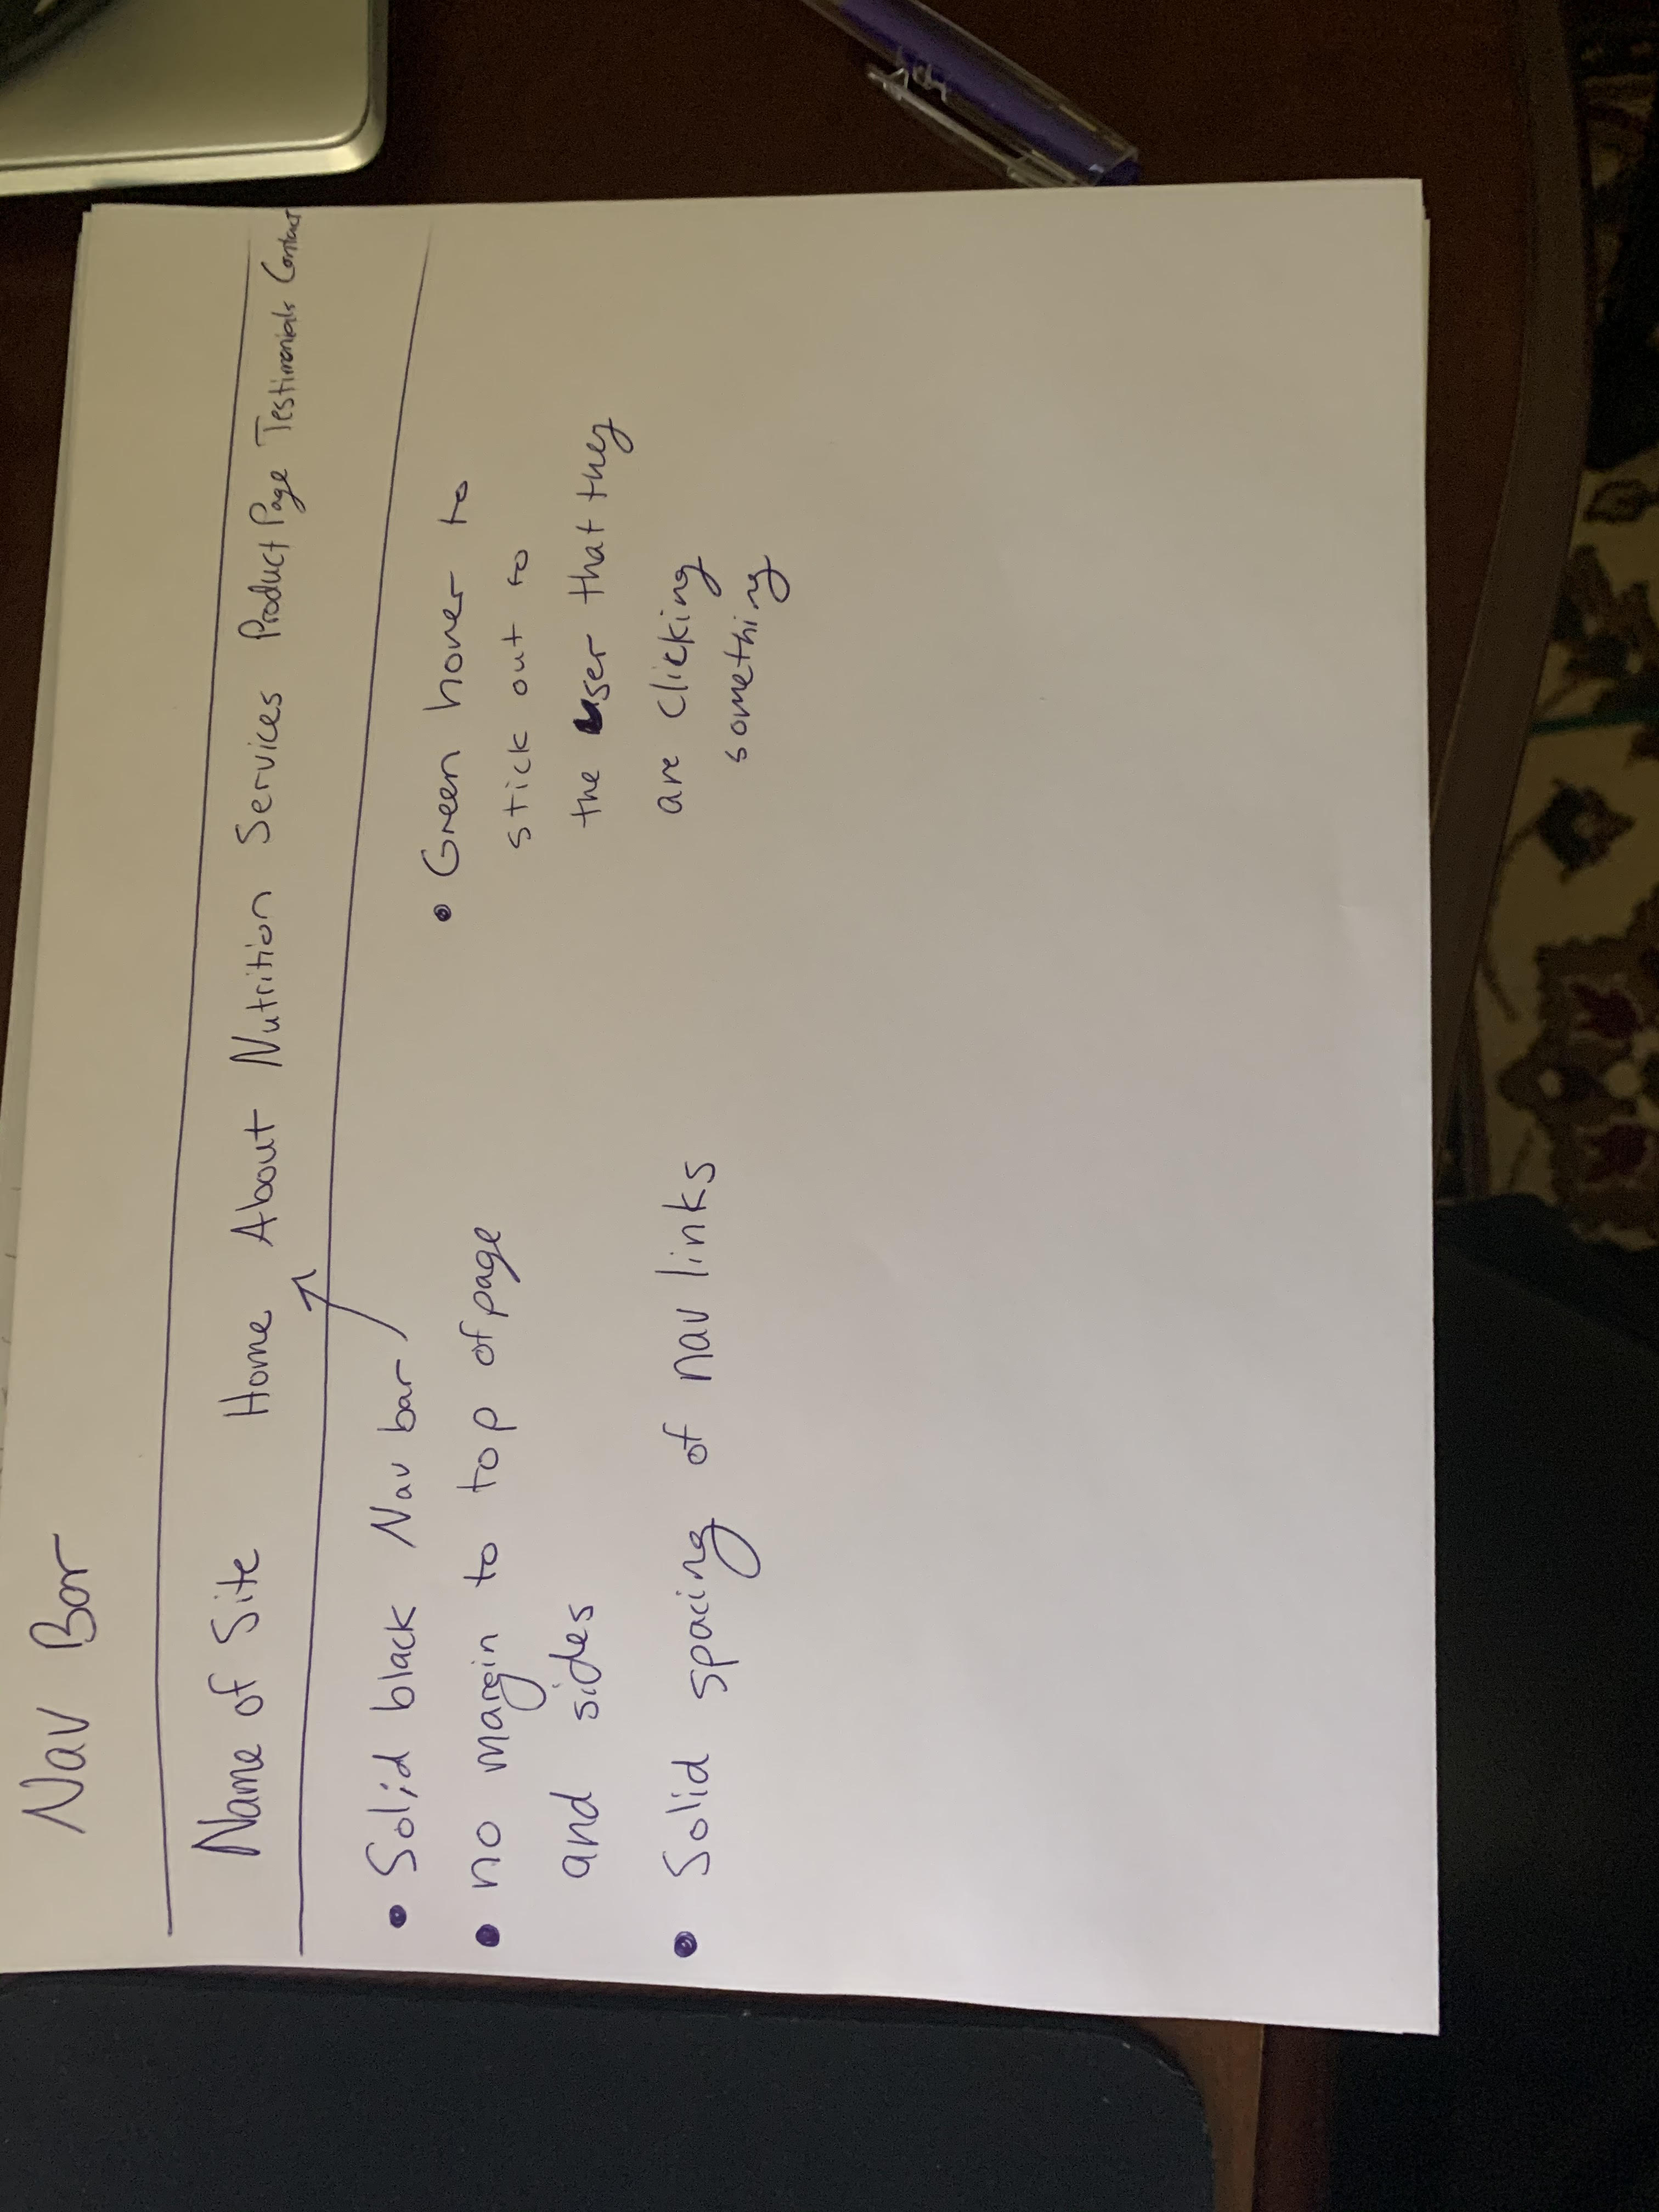 Nav Bar
Name of Site Home About Nutrition Services Product Page Testimonials Contact
• Solid black Nav bar
• no margin to top of page
and sides
• Solid spacing of nav links
• Green hover to
stick out to
the user that they
are clicking
something